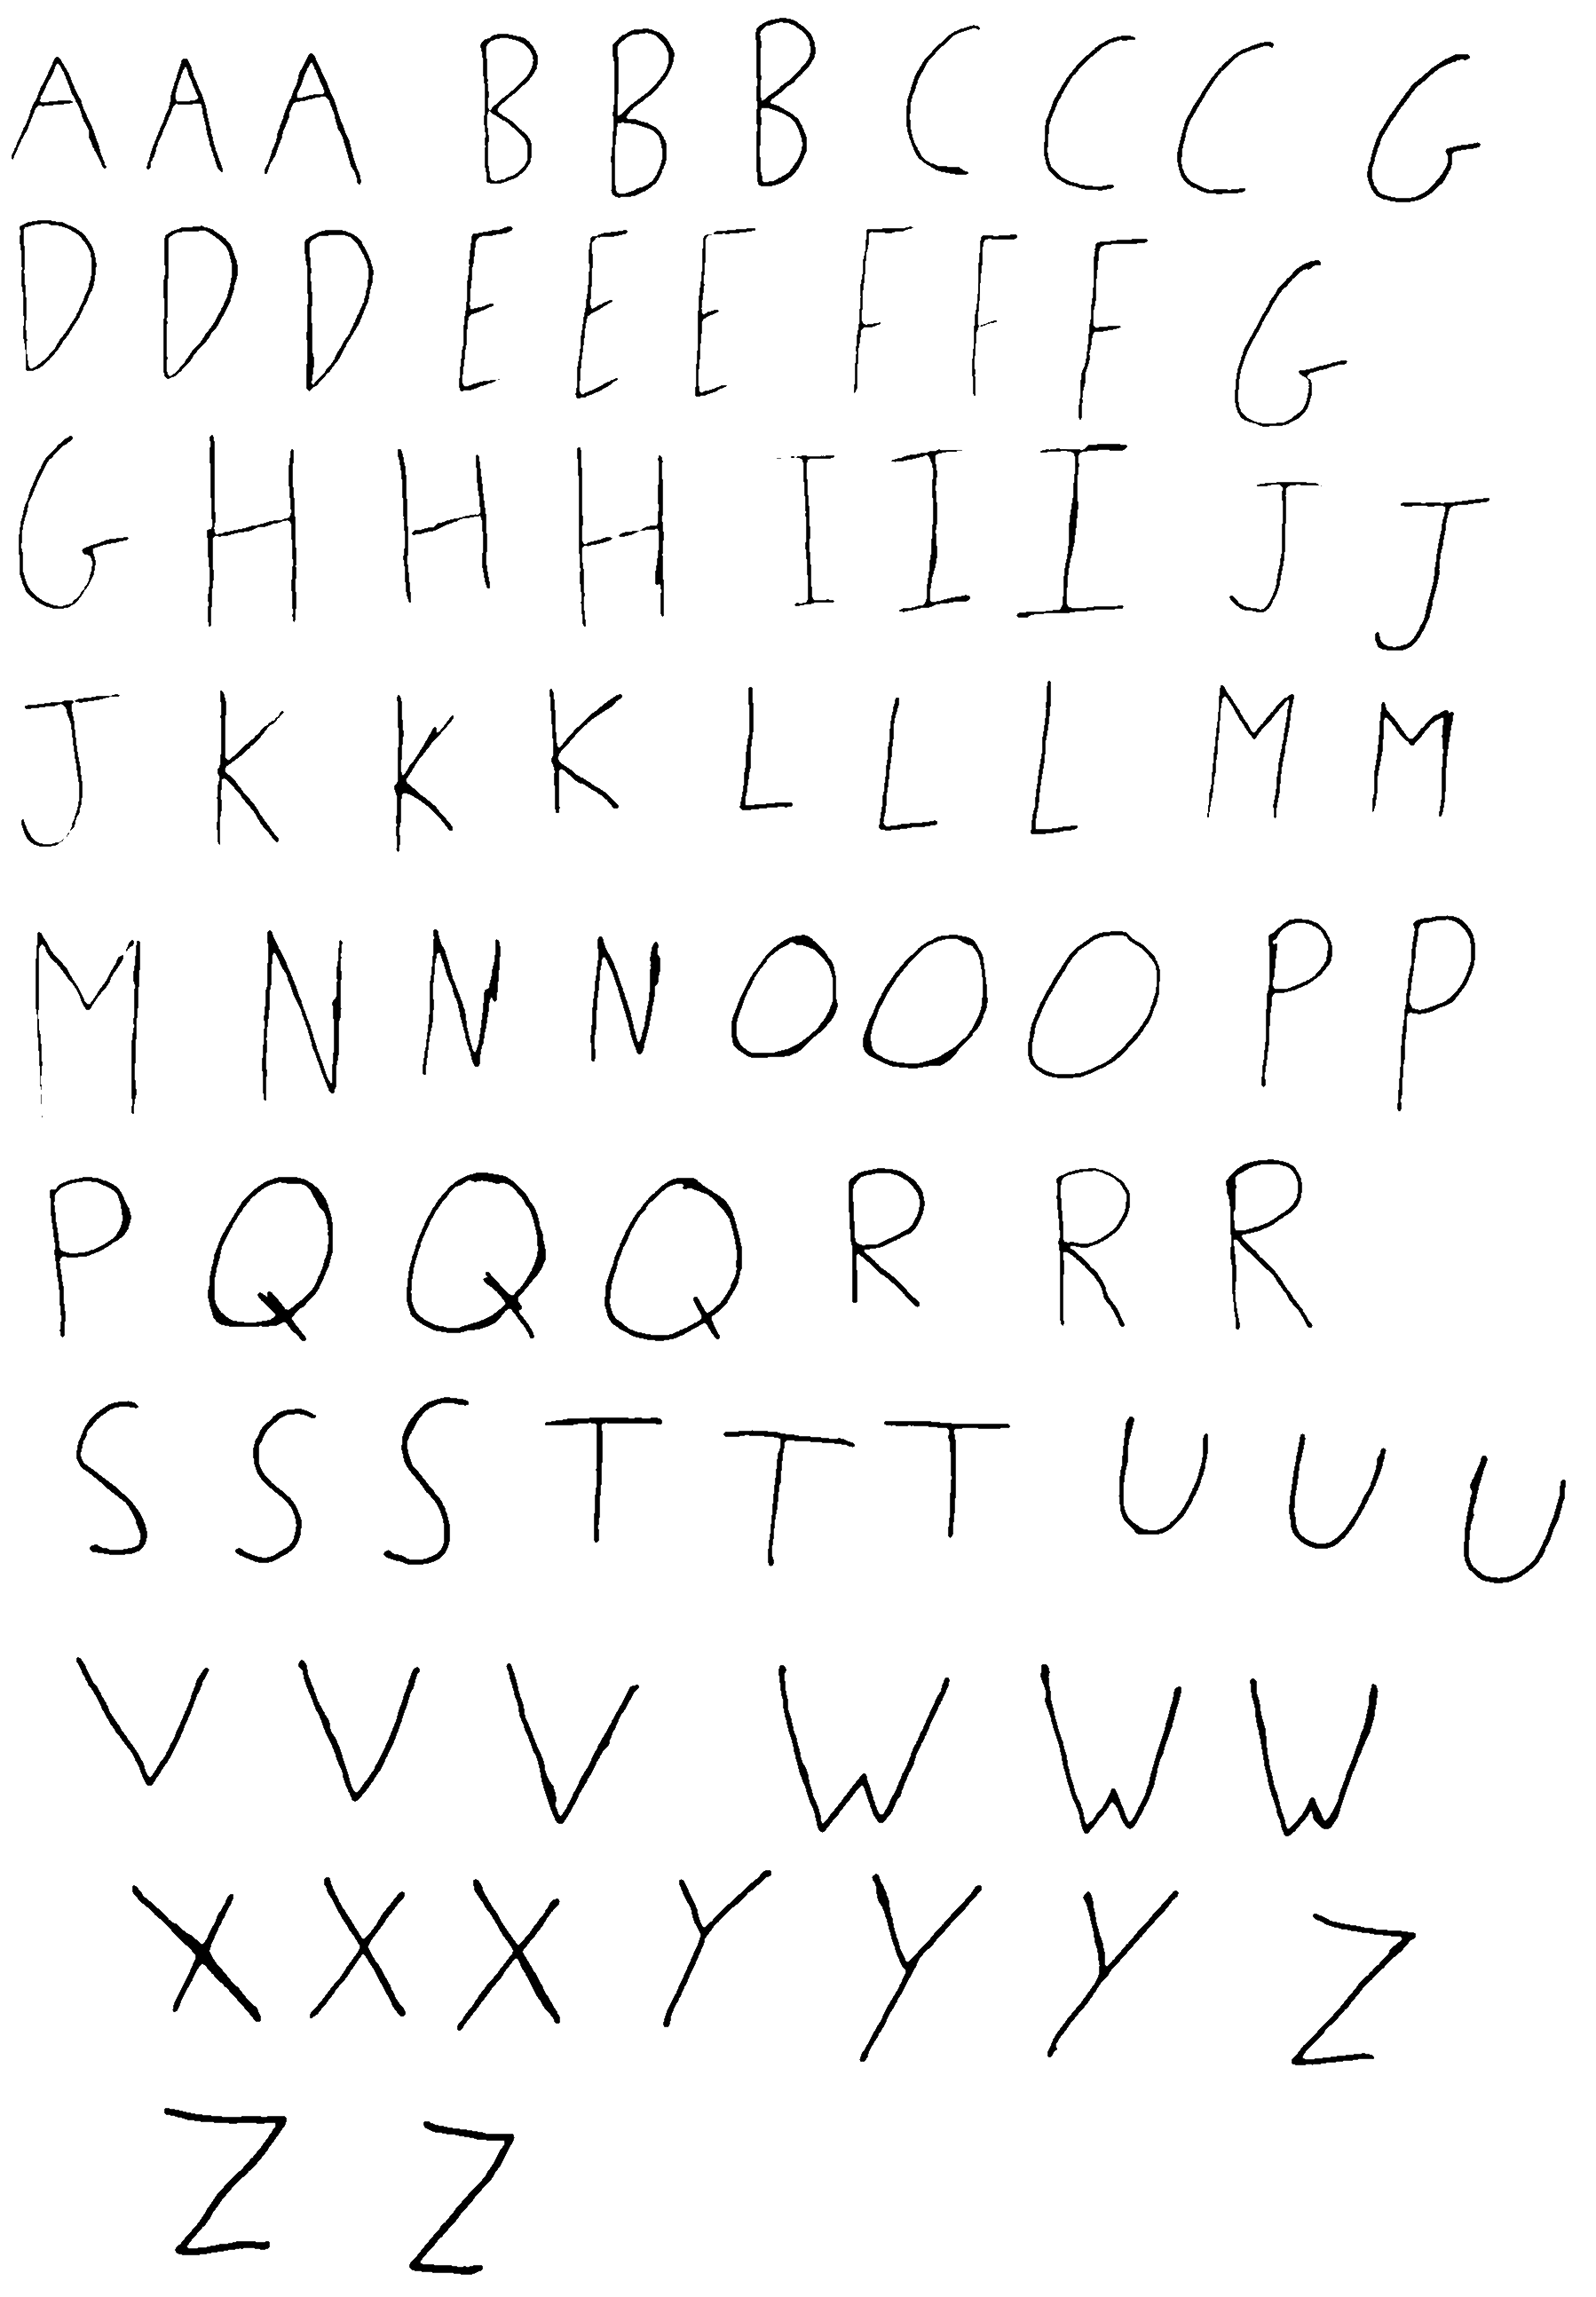 A A A B B B C C C G
D D D E E E F F F G
G H H H I I I J J
J K K K L L L M M
M N N N O O O P P
P Q Q Q R R R
S S S T T T U U U
V V V W W W
X X X Y Y Y Z
Z Z